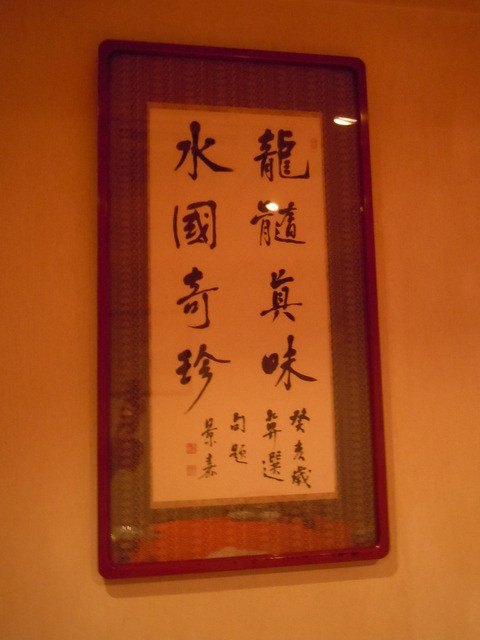 龍髓眞味
水國奇珍
癸亥歲
弇選
句題
景嘉